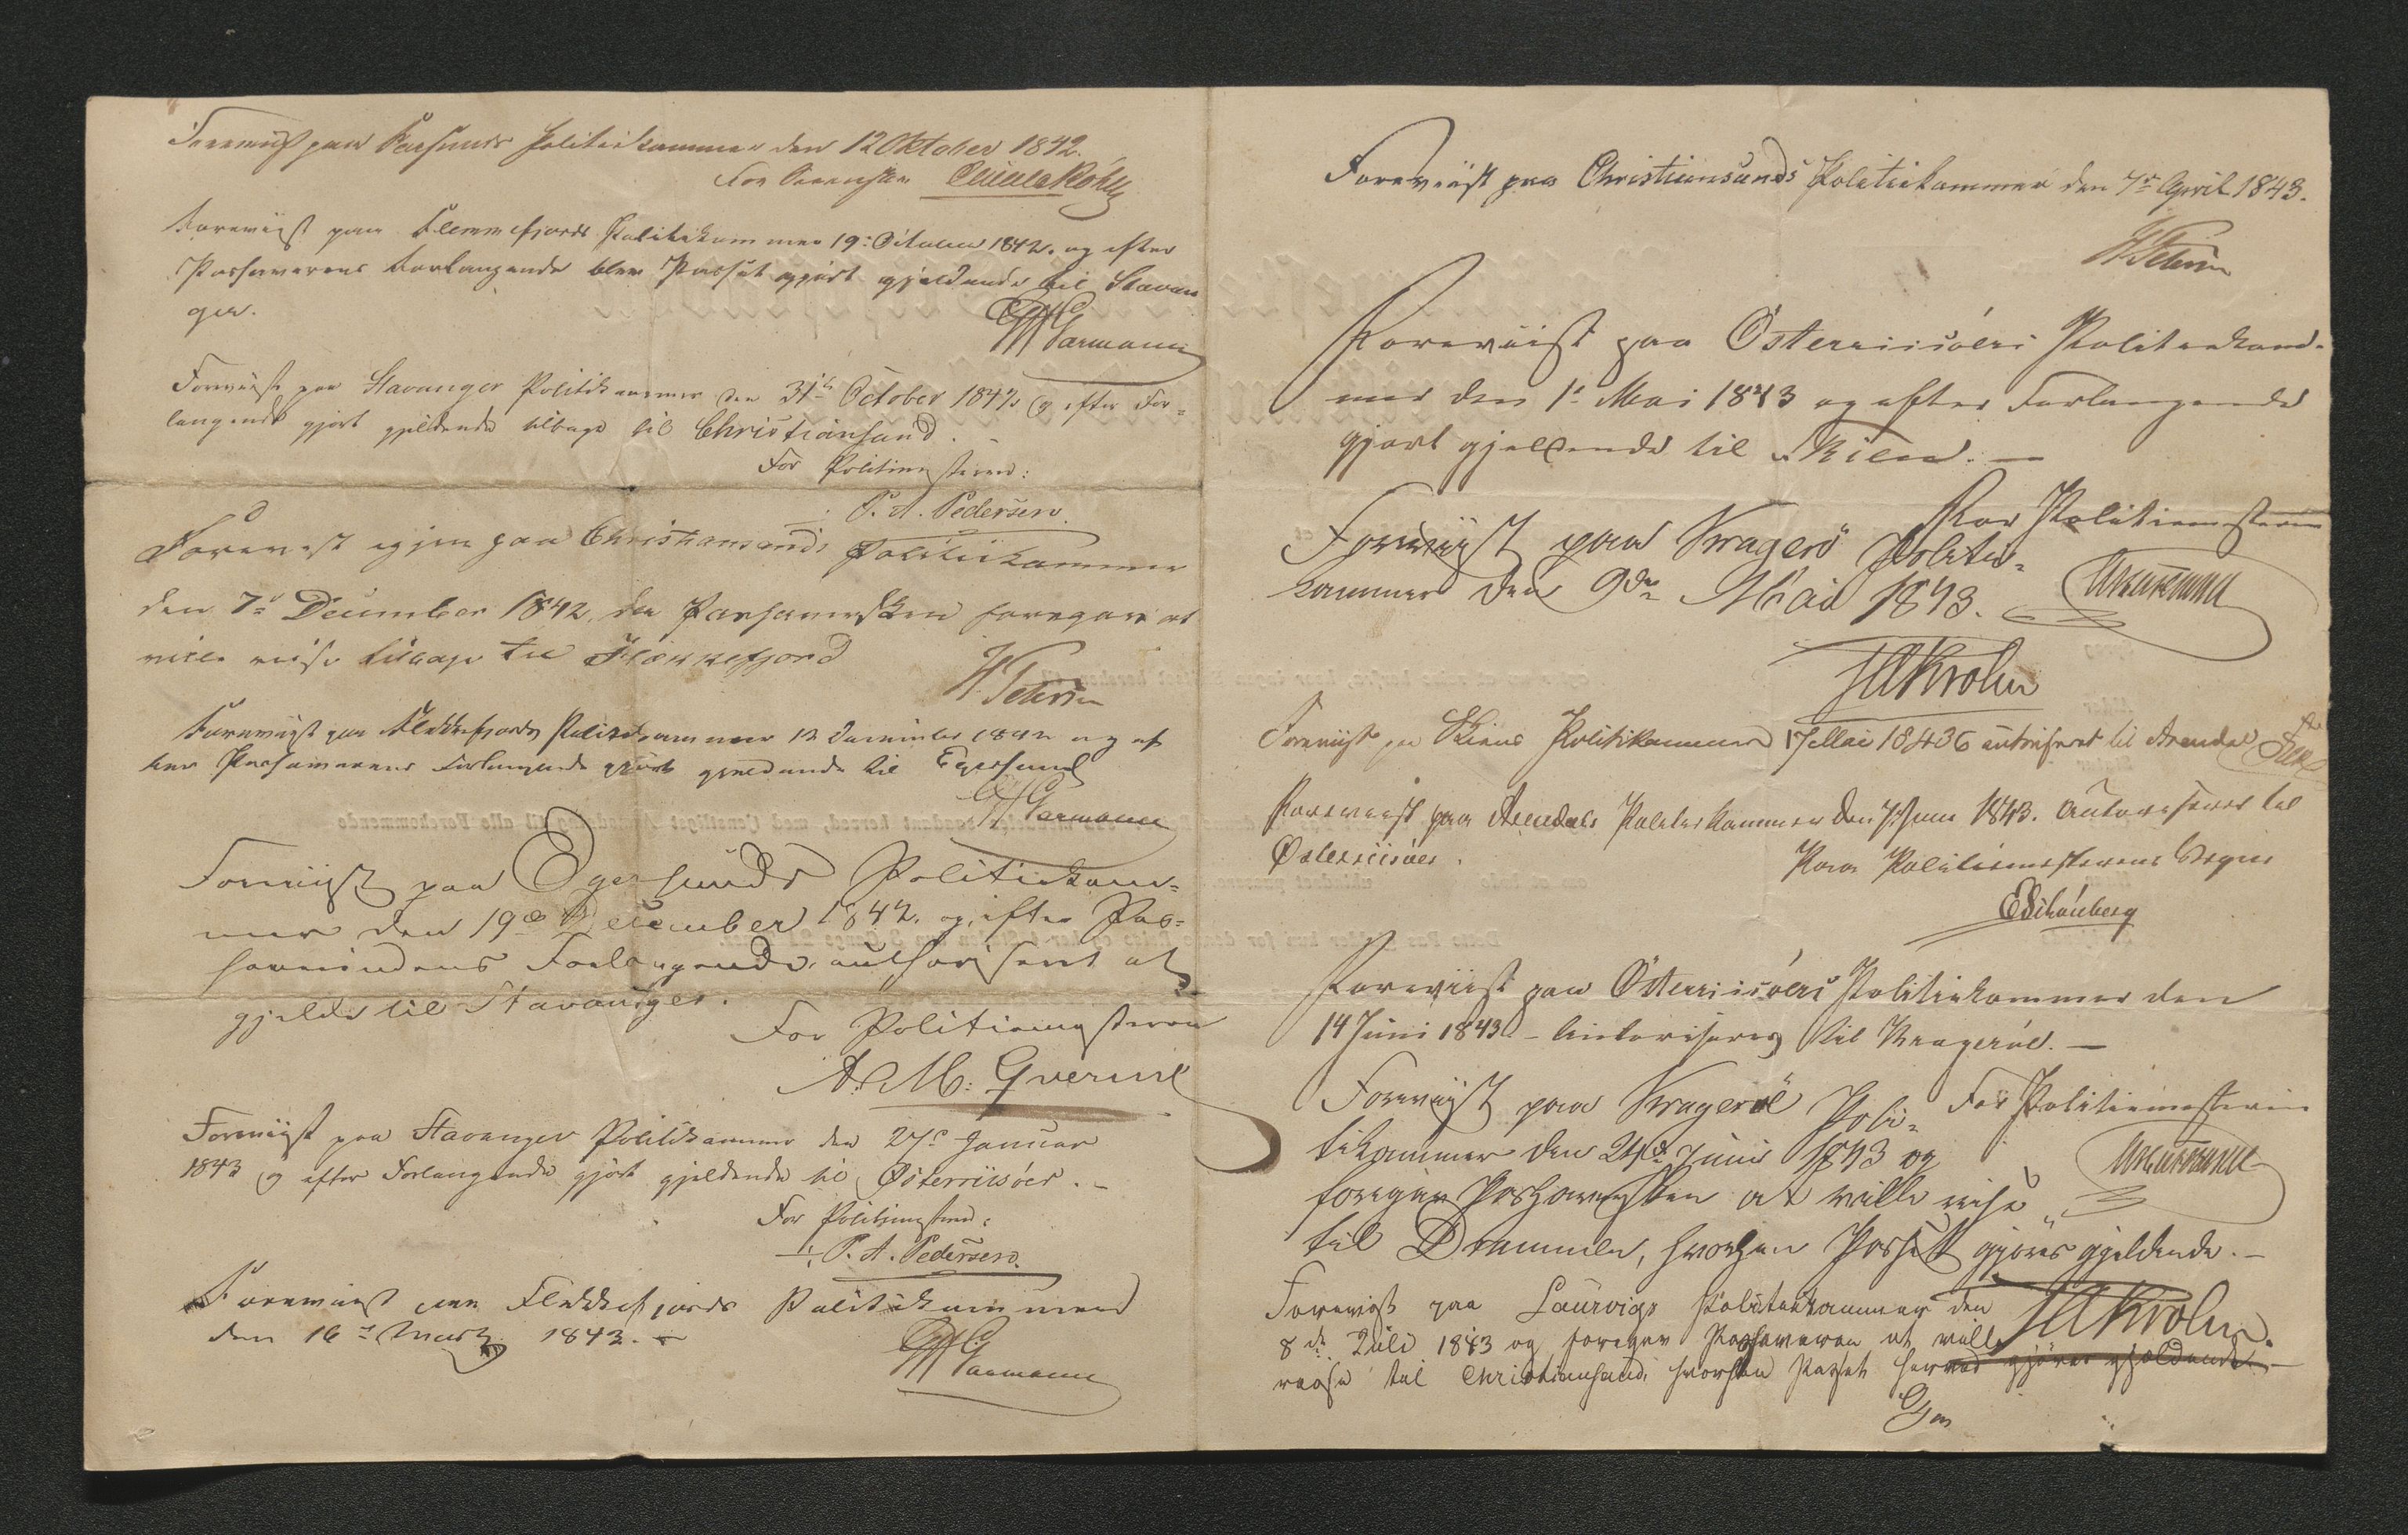 Foreviist paa Farsunds Politiekammer den 12 Oktober 1842.
Foreviist paa Flekkefjords Politiekammer 19: October 1842. og efter
Passhaverens Forlangende blev Passet gjort gjeldende til Stavan
ger.
Garmann
Foreviist paa Stavanger Politikammer den 31te October 1842 og efter For=
langende gjort gjeldende tilbage til Christiansand.
For Politimesteren:
P. A. Pedersen
Forevist igjen paa Christiansands Politiekammer
den 7de December 1842, da Passhaversken foregav at
ville reise tilbage til Flekkefjord
Foreviist paa Flekkefjords Politikammer 12 December 1842 og ef
ter Passhaverens Forlangende gjort gjeldende til Egersund
Garmann
Foreviist paa Egersunds Politiekam=
mer den 19de December 1842. og, efter Pas=
Forlangende, authoriseret at
gjelde til Stavanger.
For Politiemesteren
A. M: Qverme
Foreviist paa Stavanger Politikammer den 27de Januar
1843 og efter Forlangende gjort gjeldende til Østerriisöer. -
For Politimesteren:
P. A. Pedersen.
Foreviist paa Flekkefjords Politikammer
den 16de Marts 1843. -
Garmann
Foreviist paa Christiansunds Politiekammer den 7de April 1843.
Foreviist paa Østerriisöers Politiekam-
mer den 1ste Mai 1843 og efter Forlangende
gjort gjeldende til Skien. —
For Politiemesteren
Foreviist paa Kragerö Politie=
kammer den 9de Mai 1843.
Foreviist paa Skiens Politikammer 17 Mai 1843 & autoriseret til Arendal
Foreviist paa Arendals Politiekammer den 7 Juni 1843. Autoriseret til
Østerriisöer.
Paa Politiemesterens Vegne
E Schönberg
Foreviist paa Østerriisöers Politiekammer den
14 Juni 1843 - Autoriseres til Kragerøe. —
For Politiemesteren
Foreviist paa Kragerøe Poli=
tikammer den 24de Juni 1843 og
foregav Passhaversken at ville reise
til Drammen, hvorhen Passet gjöres gjeldende. -
JA Krohn
Foreviist paa Laurvigs Politiekammer den
8de Juli 1843 og foregav Passhaveren at ville
reise til Christiansand, hvorhen Passet herved gjöres gjeldende -